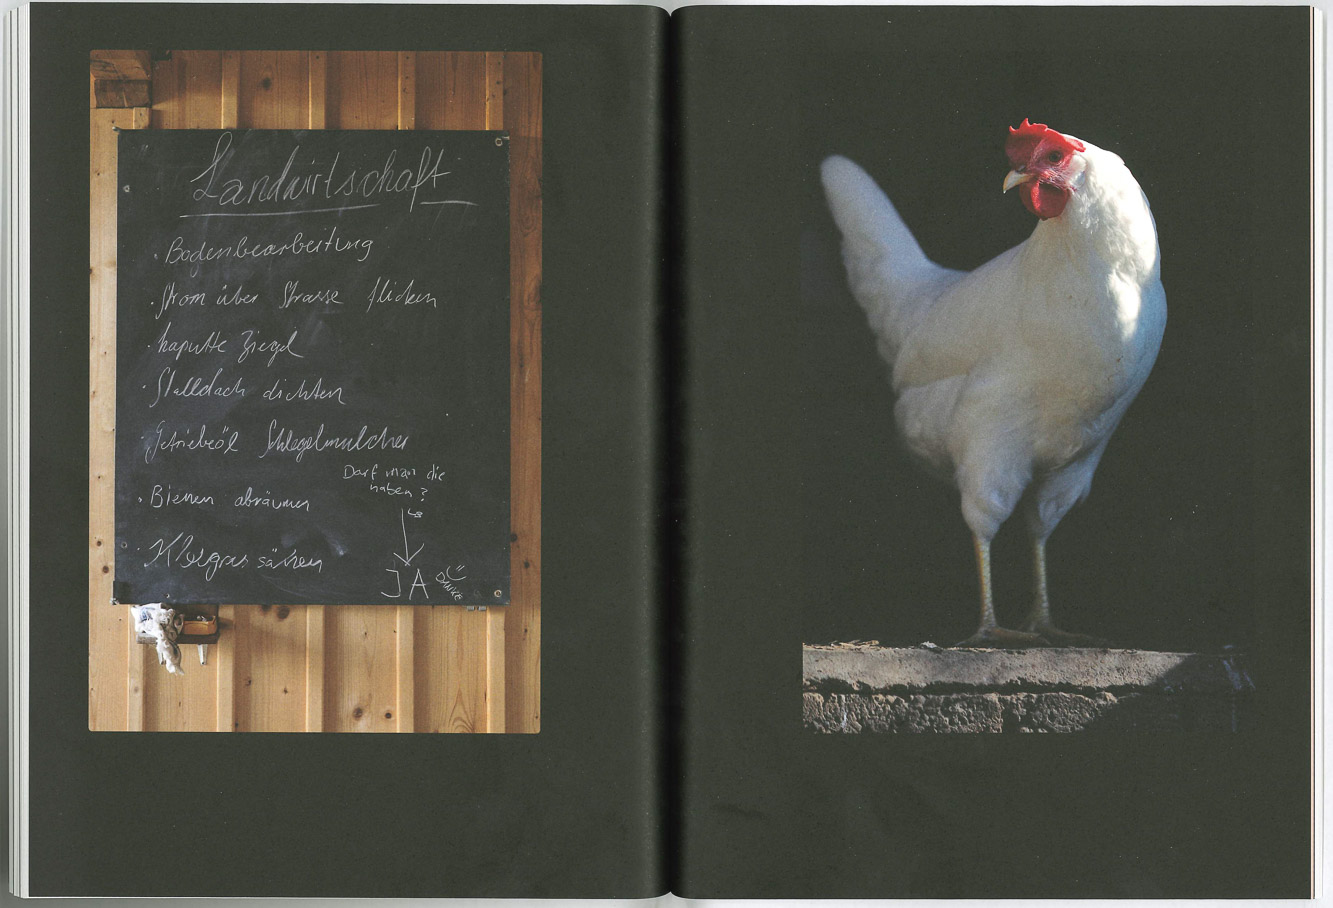 Landwirtschaft
· Bodenbearbeitung
· Strom über Strasse flicken
· kaputte Ziegel
· Stalldach dichten
· Getriebeöl Schlegelmulcher
Darf man die
haben?
· Bienen abräumen
· Kleegras sähen
JA
DANKE